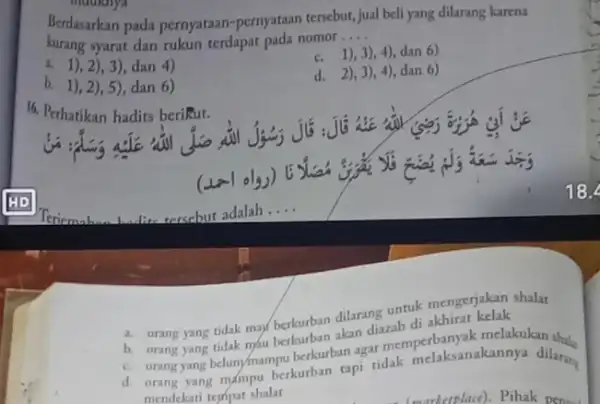 Berdasarkan pada pernyataan-pernyataan tersebut, jual beli yang dilarang karena
kurang syarat dan rukun terdapat pada nomor ....
a. 1), 2), 3), dan 4)
b. 1), 2), 5), dan 6)
c. 1), 3), 4), dan 6)
d. 2), 3), 4), dan 6)
16. Perhatikan hadits berikut.
عَنْ أَبِيْ هُرَيْرَةَ رَضِيَ اللهُ عَنْهُ قَالَ: قَالَ رَسُوْلُ اللهِ صَلَّى اللهُ عَلَيْهِ وَسَلَّمَ: مَنْ
وَجَدَ سَعَةً وَلَمْ يُضَحِّ فَلَا يَقْرَبَنَّ مُصَلَّانَا (رواه احمد)
HD
18.4
tersebut adalah ....
a. orang yang tidak mau berkurban dilarang untuk mengerjakan shalat
b. orang yang tidak mau berkurban akan diazab di akhirat kelak
c. orang yang belum mampu berkurban agar memperbanyak melakukan shalat
d. orang yang mampu berkurban tapi tidak melaksanakannya dilarang
mendekati tempat shalat
(marketplace). Pihak